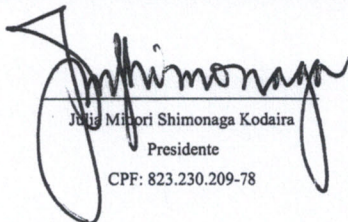 Shimonaga
Julia Midori Shimonaga Kodaira
Presidente
CPF: 823.230.209-78